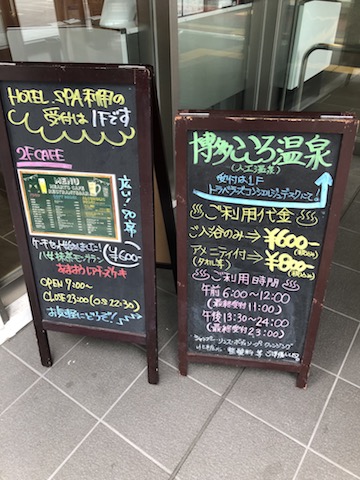 HOTEL. SPA利用の
受付は 1Fです
2F CAFE
広い！70席
ケーキセット始めました！
¥600
八女抹茶モンブラン
OPEN 7:00～
CLOSE 23:00 (O.S 22:30)
お気軽にどうぞ！
博多こころ温泉
(人工温泉)
受付は 1F
トラベラーズコンシェルジュデスクにて
ご利用代金
ご入浴のみ→¥600-
アメニティ付→¥800
(タオル等)
ご利用時間
午前 6:00～12:00
(最終受付 11:00)
午後 13:30～24:00
(最終受付 23:00)